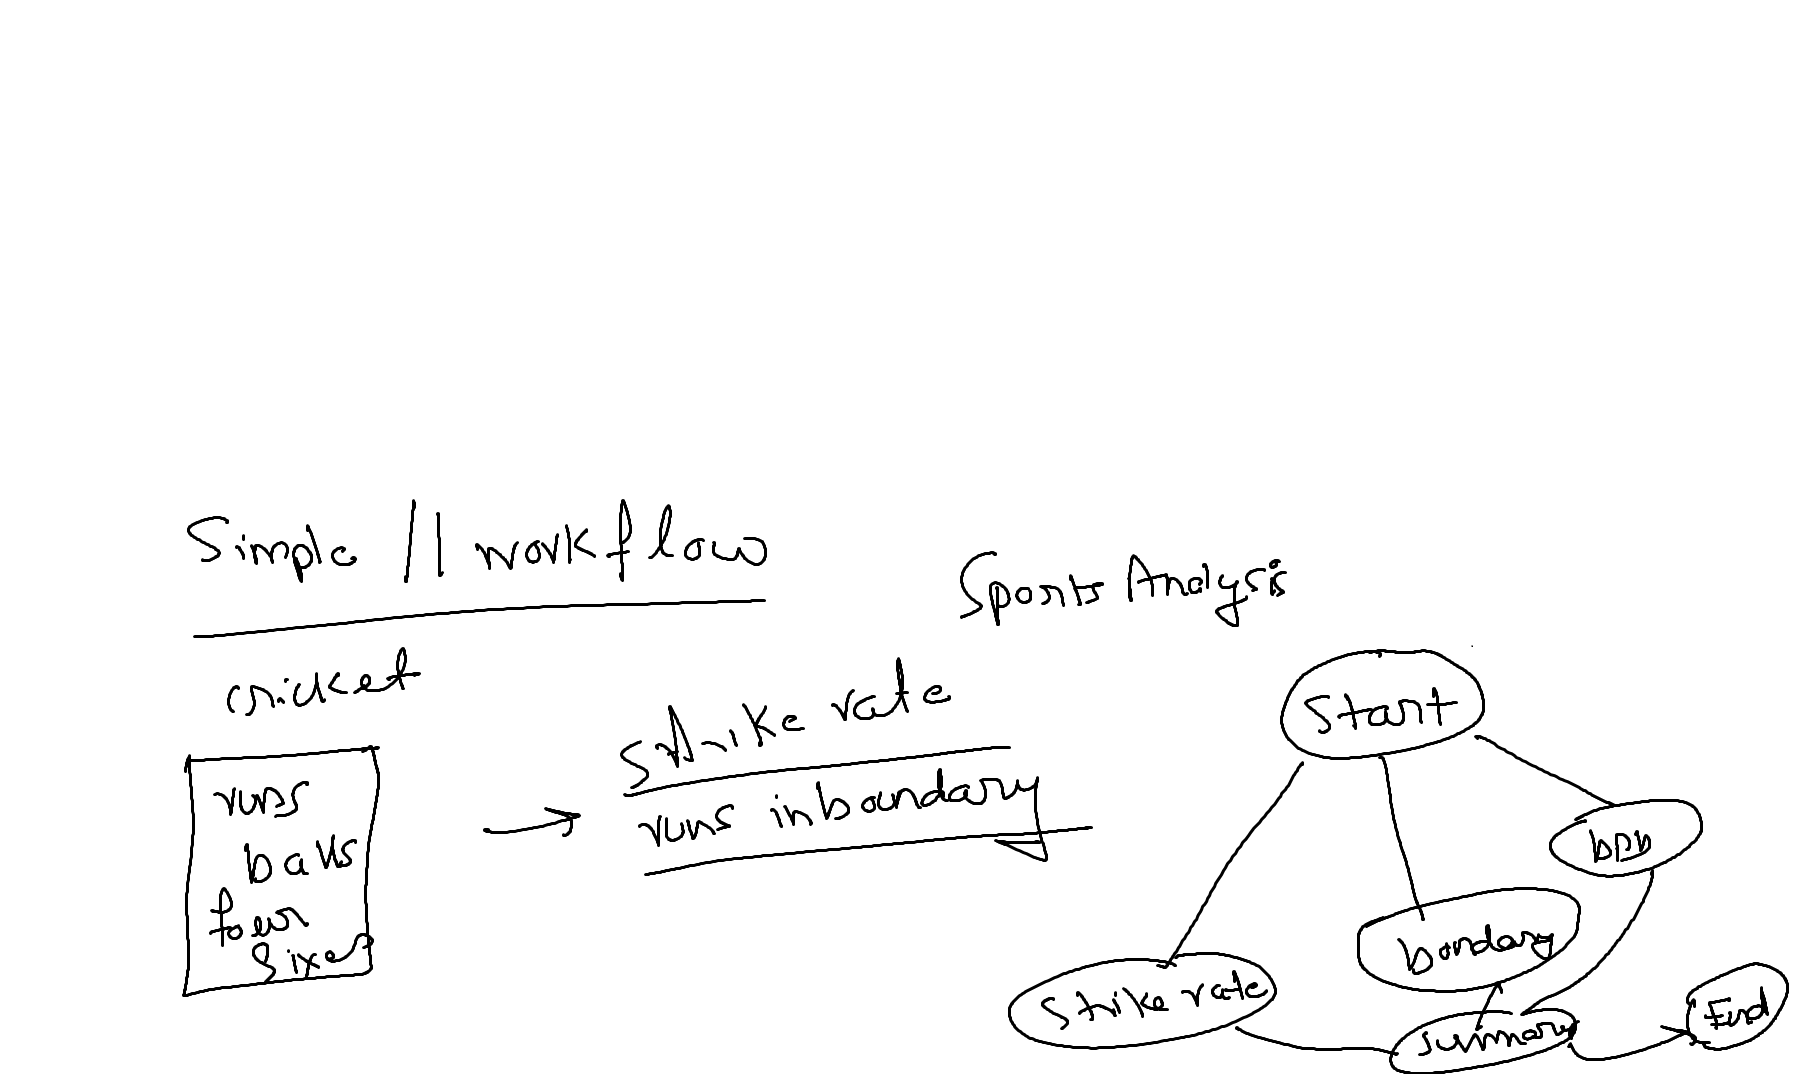 Simple || workflow
Sports Analysis
cricket
runs
balls
four
sixes
strike rate
runs in boundary
Start
bpb
bondary
Strike rate
summary
End